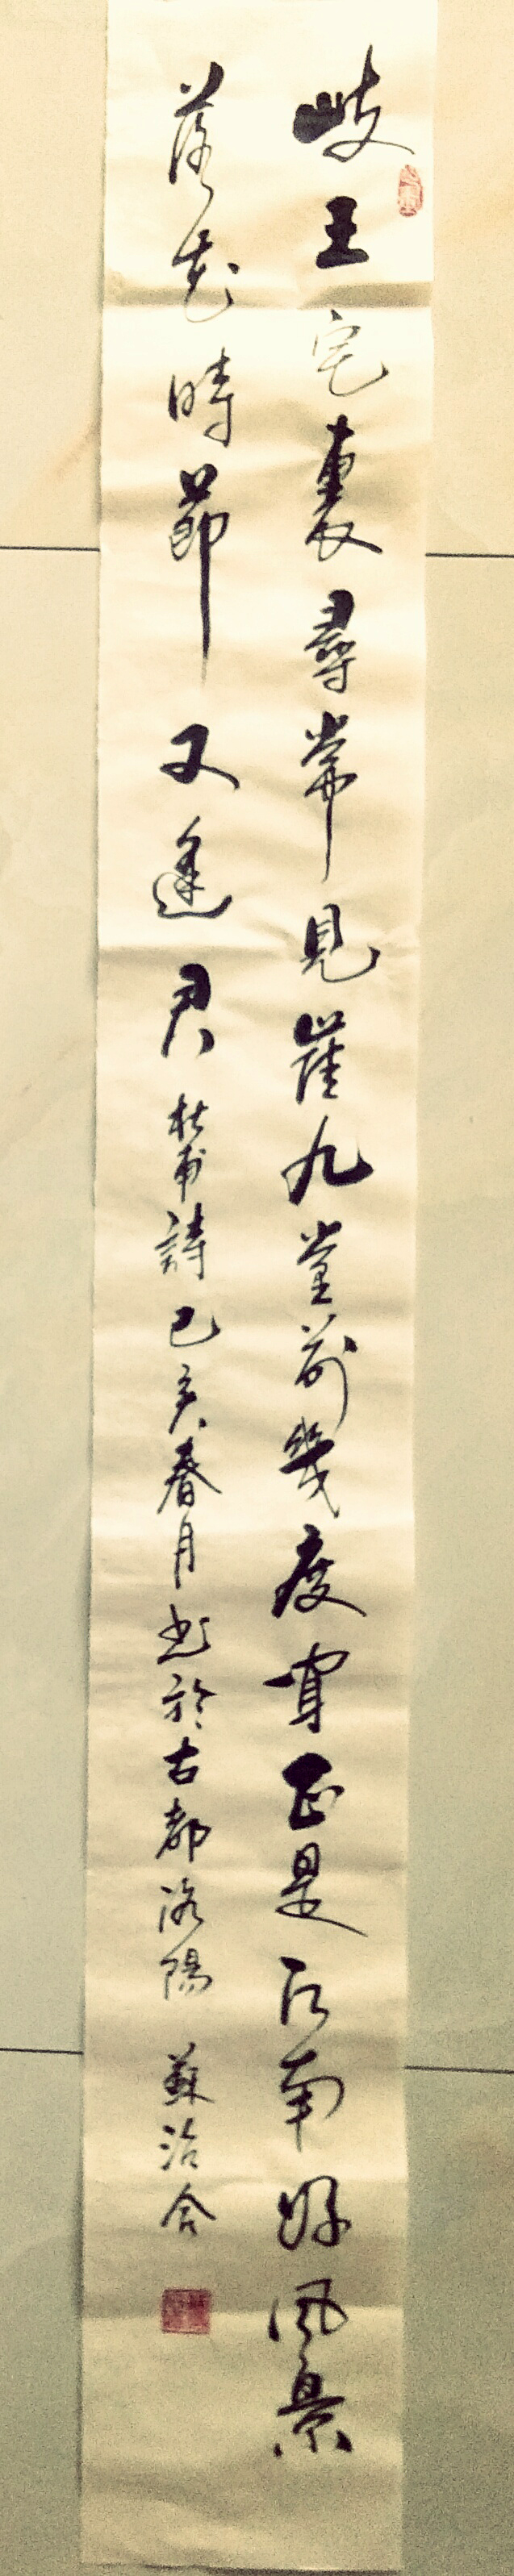 岐王宅裏尋常見崔九堂前幾度聞正是江南好風景
落花時節又逢君 杜甫詩 己亥春月書於古都洛陽 蘇治合